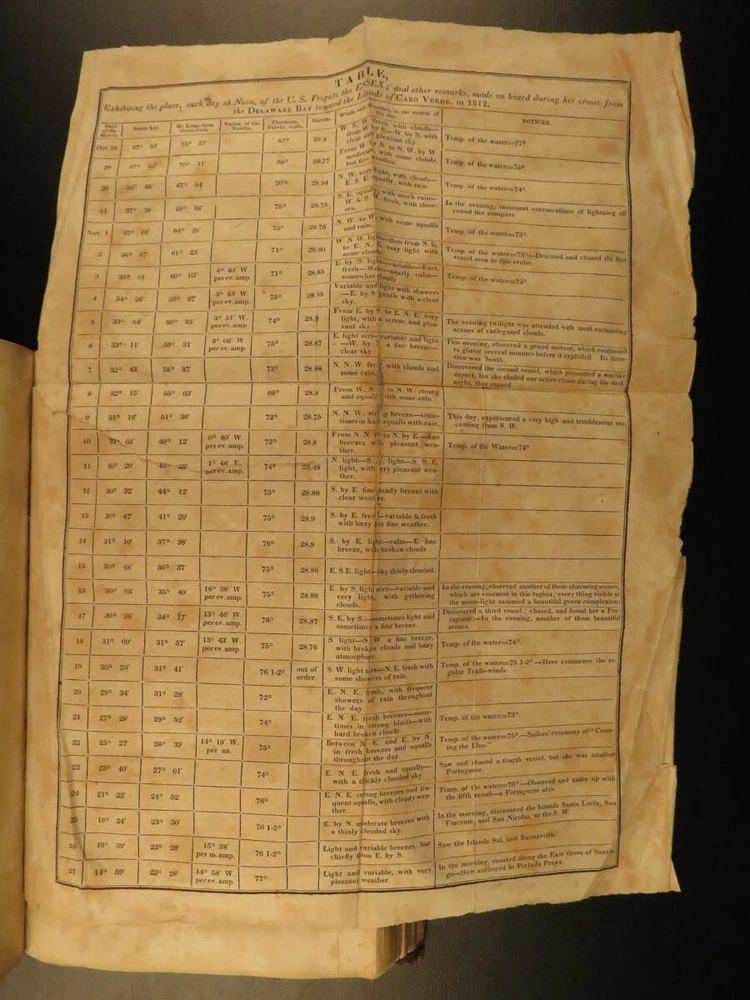 TABLE,
Exhibiting the place, each day at Noon, of the U. S. Frigate the ESSEX; and other remarks, made on board during her cruse from
the DELAWARE BAY toward the Islands of CABO VERDE, in 1812.
Days of the Month. North Lat. W. Long. from Greenwich. Variat. of the Needle. Thermom. Farenh. scale. Barom. Winds and Weather, in the course of the day. NOTICES.
Oct. 28 67° W. S. W. fresh with clouds—from W by S—W by N. with clear and pleasant sky Temp. of the water=77°
29 70° 11' 69° 28.77 From W. by N. to N. W. by W moderate, with some clouds, but fine weather. Temp. of the water=75°
30 48' 67° 54' 70° 28.94 N. W. very light, with clouds—E. S. E. squally, with rain. Temp. of the water=74°
31 37° 75° 28.75 S. E. squally with much rain—W. & S. W. fresh, with showers. In the evening, incessant corruscations of lightning all round the compass
Nov. 1 37° 64° 28' 75° 28.76 N. W to W. with some squalls and rain. Temp. of the water=73°.
2 36° 07' 61° 25' 71° 28.80 W N W. light—then from N. E. to E. N. E. very light with some clouds. Temp. of the water=73°—Descried and chased the first vessel seen in this cruise.
3 35° 01' 60° 02' 4° 40' W. per ev. amp. 71° 28.85 E. by S. light—variable—East, fresh—West—nearly calm—somewhat cloudy Temp. of the water=72°.
4 34° 26' 37' 3° 43' W. per ev. amp. 75° 28.85 Variable and light with showers—E. by S gentle with a clear sky.
5 33° 54' 59° 33' 3° 51' W. per ev. amp. 74° 28.9 From E. by S. to E. N. E. very light, with a serene and pleasant sky The evening twilight was attended with most enchanting scenes of cariegated clouds.
6 33° 11' 59° 31' 3° 06' W per ev. amp. 75° 28.87 E. light airs—variable and light—W. by a fine breeze—clear sky. This evening, observed a grand meteor, which continued to glitter several minutes before it exploded. Its direction was South.
7 32° 43' 58° 37' 73° 28.88 N. N. W. fresh, with clouds and some rain. Discovered the second vessel, which presented a warlike aspect, but she eluded our active chase during the dark night, that ensued
8 32° 15' 55° 03' 69° 28.8 From W. N. to N. W. strong and squally with some rain.
9 31° 16' 51° 36' 72° 28.75 N. N. W. strong breeze—sometimes in hard squalls with rain. This day, experienced a very high and troublesome sea, coming from S. W.
10 31° 05' 48° 12' 0° 40' W. per ev. amp. 72° 28.8 From N. N. W. to N. by E.—fine breezes with pleasant weather. Temp. of the Water=74°
11 30° 29' 46° 22' 1° 46' E. per ev. amp. 74° 28.48 N. light—S. light—S. S. E. light, with very pleasant weather.
12 30° 32' 44° 12' 75° 28.88 S. by E. fine steady breeze with clear weather.
13 30° 47' 41° 29' 75° 28.9 S. by E. fresh—variable & fresh with hazy but fine weather.
14 31° 10' 37° 38' 76° 28.9 S. by E. light—calm—E. fine breeze, with broken clouds
15 30° 48' 36° 37' 75° 28.86 E.S.E. light—sky thinly clouded.
16 30° 05' 35° 40' 16° 38' W per ev. amp. 75° 28.88 E. by S. light airs—variable and very light, with gathering clouds. In the evening, observed another of those charming scenes, which are common in this region; every thing visible in the moon-light assumed a beautiful green complexion.
17 30° 39' 34° 17' 13° 46' W. per ev. amp. 76° 28.87 S. E. by S.—sometimes light and sometimes a fine breeze. Discovered a third vessel; chased, and found her a Portuguese.—In the evening, another of those beautiful scenes.
18 31° 09' 31° 57' 13° 43' W. per ev. amp. 75° 28.76 S light—S. W. a fine breeze, with broken clouds and hazy atmosphere. Temp. of the water=74°.
19 30° 26' 31° 41' 76 1-2° out of order. S. W. light airs—N. E. fresh with some showers of rain. Temp. of the water=73 1-2°.—Here commence the regular Trade-winds.
20 29° 34' 31° 28' 72° E. N. E. fresh, with frequent showers of rain throughout the day.
21 27° 28' 29° 52' 74° E. N E. fresh breezes—sometimes in strong blasts—with hard broken clouds Temp. of the water=73°.
22 25° 27' 28° 39' 14° 19' W. per az. 75° Between N E. and E. by N. in fresh breezes and squalls throughout the day. Temp. of the water=75°.—Sailors' ceremony of "Crossing the Line."
23 23° 40' 27° 01' 74° E. N. E. fresh and squally—with a thickly clouded sky Saw and chased a fourth vessel, but she was another Portuguese.
24 21° 32' 24° 52' 76° E. N. E. strong breezes and frequent squalls, with cloudy weather. Temp. of the water=76°—Observed and came up with the fifth vessel—a Portuguese also.
25 24' 23° 30' 76 1-2° E. by N. moderate breezes with a thinly clouded sky. In the morning, discovered the Islands Santa Lucia, San Vincente, and San Nicolas, to the S W.
26 16° 39' 23° 28' 15° 38' per m. amp. 76 1-2° Light and variable breezes, but chiefly from E. by S. Saw the Islands Sal, and Buenavista.
27 14° 59' 23° 28' 14° 58' W. per ev. amp. 77° Light and variable, with very pleasant weather. In the morning, coasted along the East shore of —then anchored in Portuila Praya.